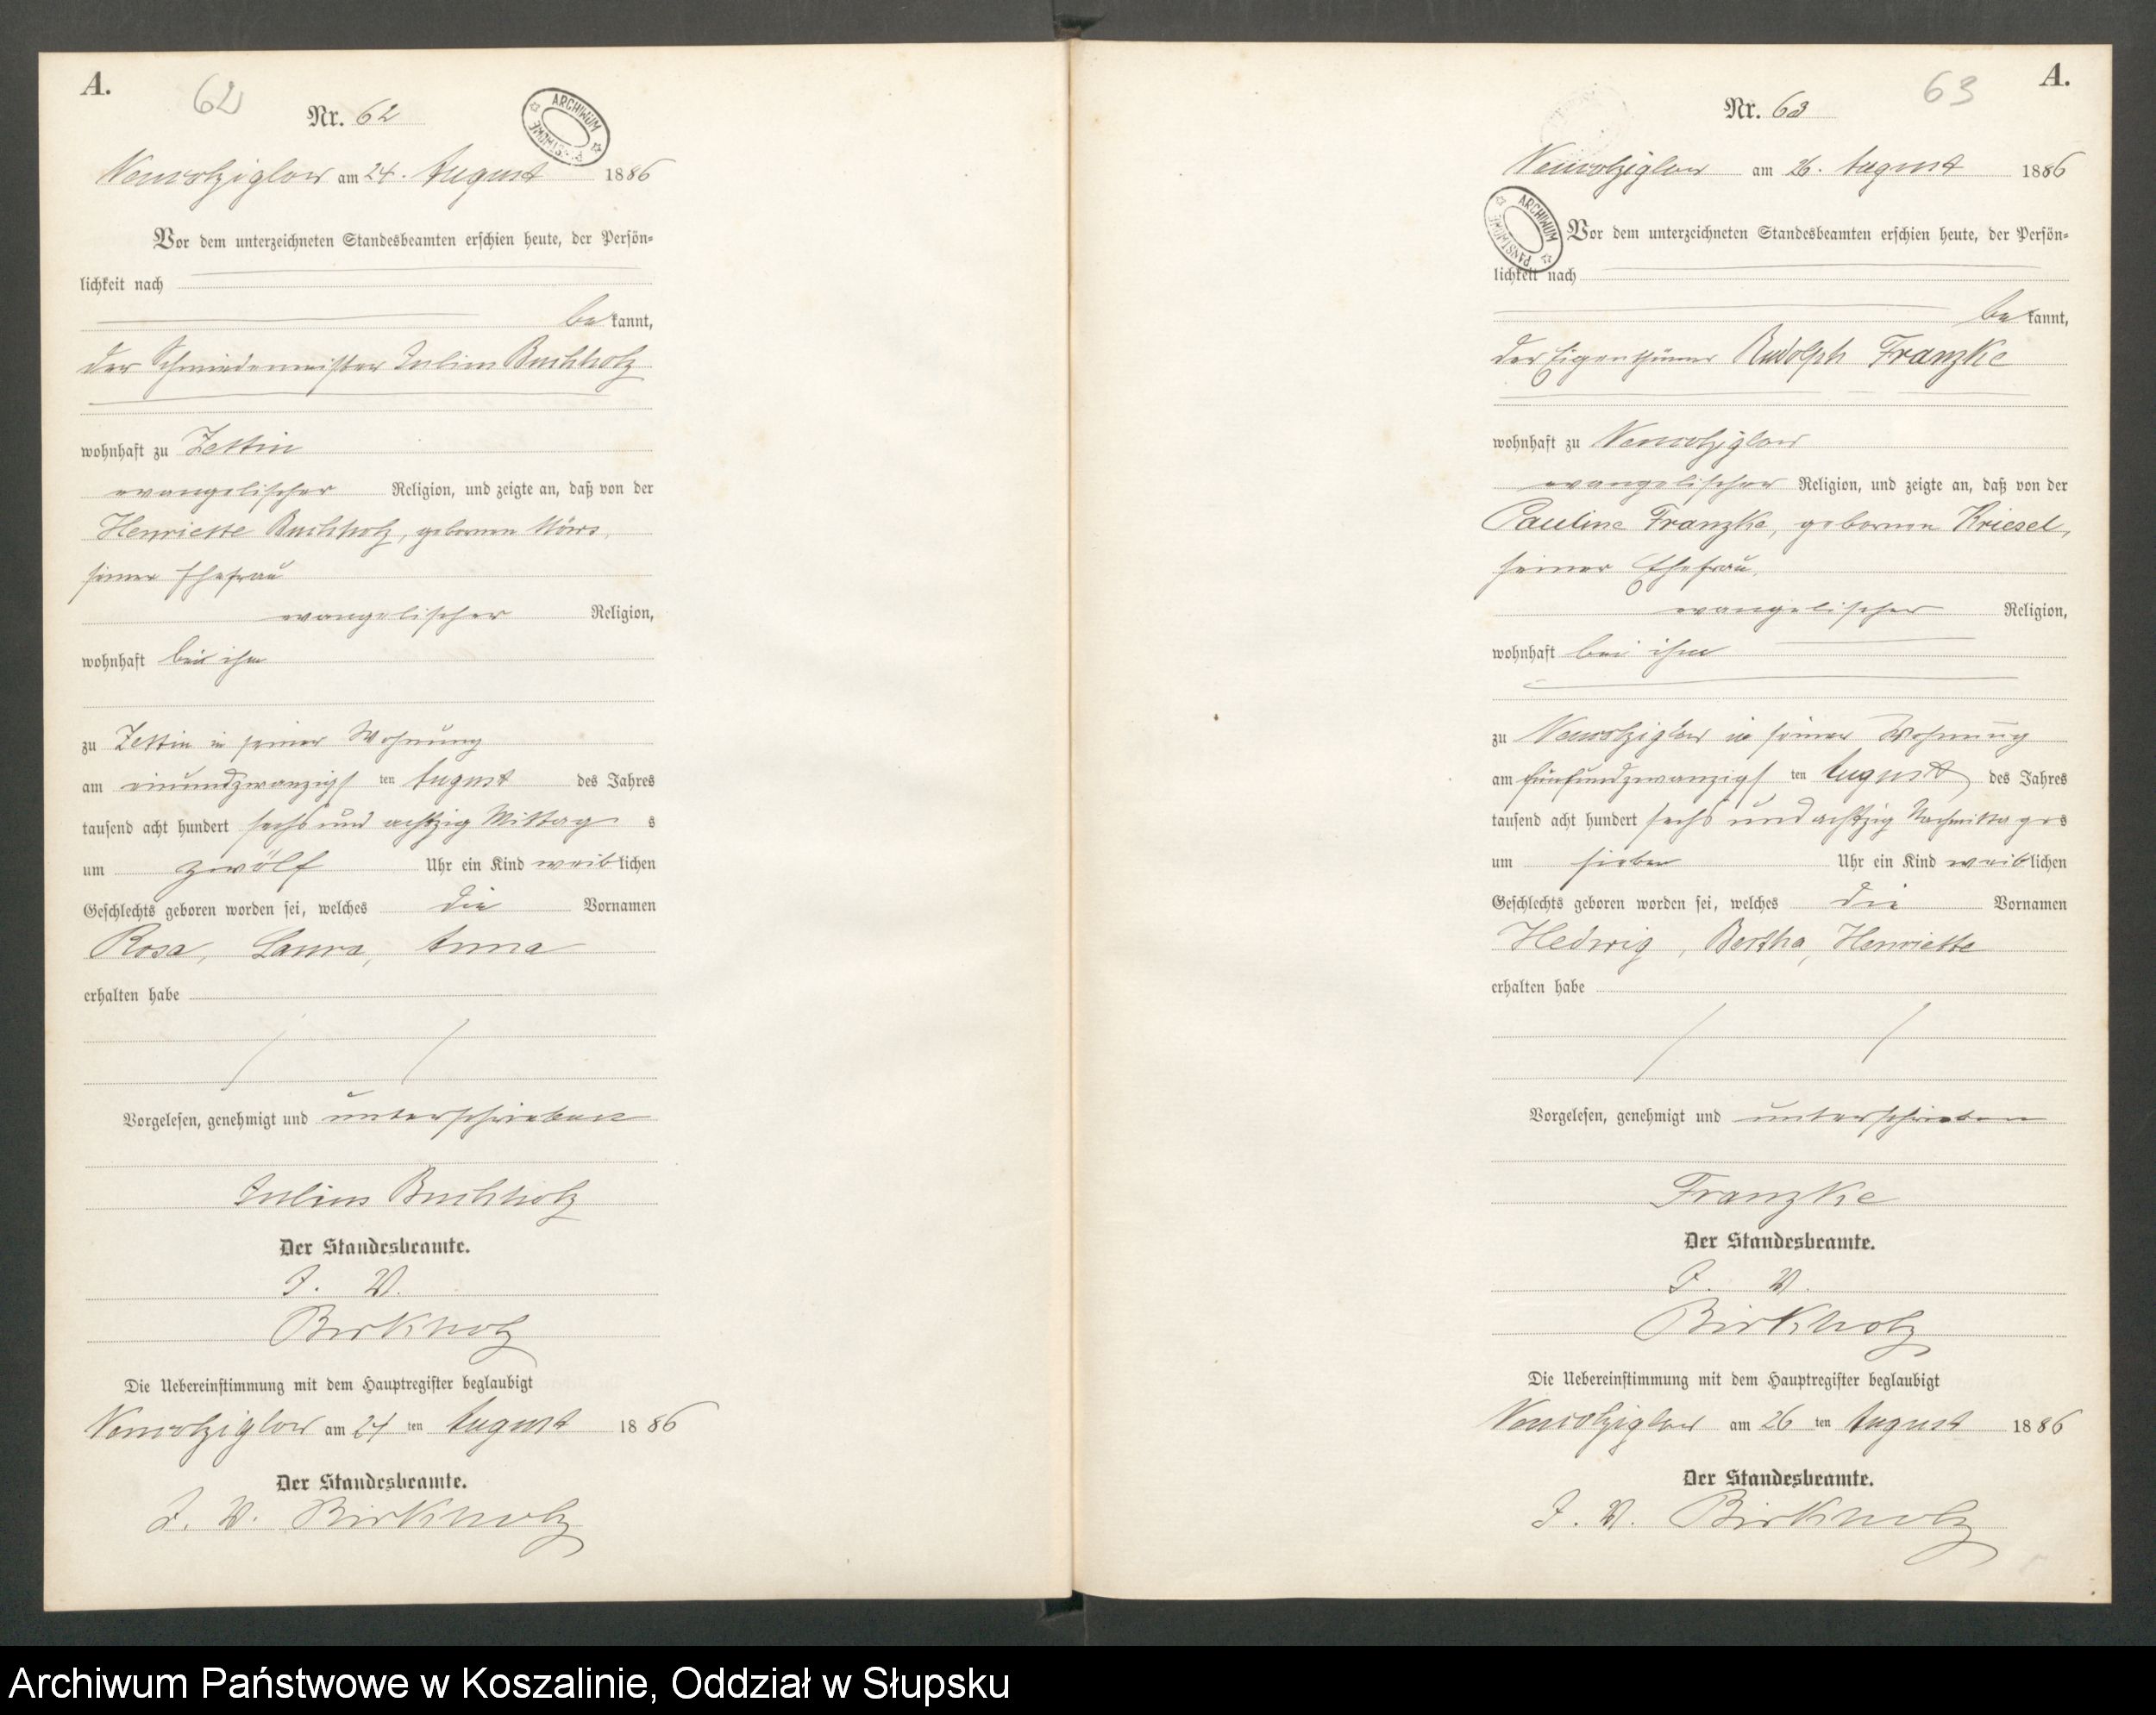 A.
62
Nr. 62
ARCHIWUM
Neuwolziglow am 24. August 1886
Vor dem unterzeichneten Standesbeamten erschien heute, der Persön-
lichkeit nach
be kannt,
der Schmiedemeister Julius Buchholz
wohnhaft zu Zettin
evangelischer Religion, und zeigte an, daß von der
Henriette Buchholz, geborenen
seiner Ehefrau
evangelischer Religion,
wohnhaft bei ihm
zu Zettin in seiner Wohnung
am einundzwanzigs ten August des Jahres
tausend acht hundert sechs und achtzig Mittag s
um zwölf Uhr ein Kind weiblichen
Geschlechts geboren worden sei, welches die Vornamen
Rosa, Laura, Anna
erhalten habe
Vorgelesen, genehmigt und unterschrieben
Julius Buchholz
Der Standesbeamte.
J. V.
Birkholz
Die Uebereinstimmung mit dem Hauptregister beglaubigt
Neuwolziglow am 24 ten August 1886
Der Standesbeamte.
J. V. Birkholz
A.
63
Nr. 63
Neuwolziglow am 26. August 1886
ARCHIWUM PAŃSTWOWE
Vor dem unterzeichneten Standesbeamten erschien heute, der Persön-
lichkeit nach
be kannt,
der Eigenthümer Rudolph Franzke
wohnhaft zu Neuwolziglow
evangelischer Religion, und zeigte an, daß von der
Pauline Franzke, geborenen Kriesel,
seiner Ehefrau,
evangelischer Religion,
wohnhaft bei ihm
zu Neuwolziglow in seiner Wohnung
am fünfundzwanzigs ten August des Jahres
tausend acht hundert sechs und achtzig Nachmittages
um sieben Uhr ein Kind weiblichen
Geschlechts geboren worden sei, welches die Vornamen
Hedwig, Bertha, Henriette
erhalten habe
Vorgelesen, genehmigt und unterschrieben
Franzke
Der Standesbeamte.
J. V.
Birkholz
Die Uebereinstimmung mit dem Hauptregister beglaubigt
Neuwolziglow am 26 ten August 1886
Der Standesbeamte.
J. V. Birkholz
Archiwum Państwowe w Koszalinie, Oddział w Słupsku